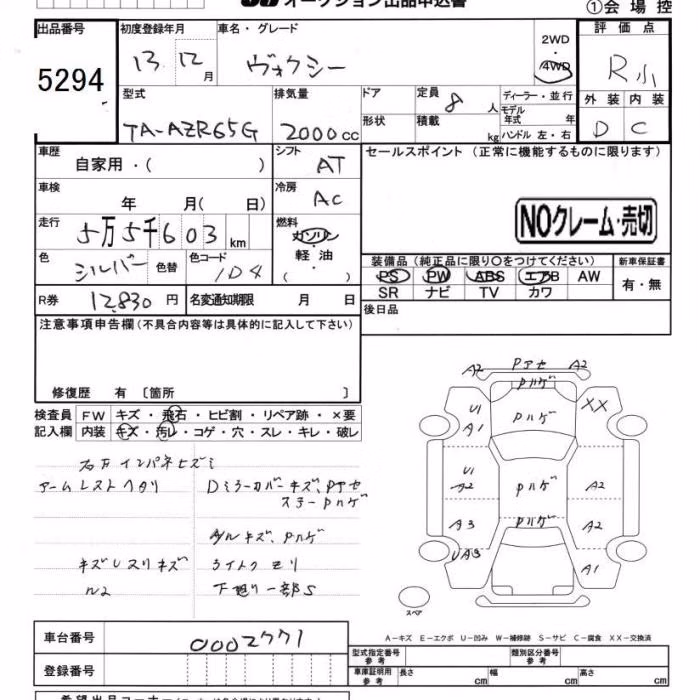 オークション出品申込書
①会場控
出品番号 初度登録年月 車名・グレード 評価点
5294 13 12 月 ヴォクシー 2WD ・ 4WD R小
型式 排気量 ドア 定員 8 人 ディーラー・並行 外装 内装
形状 積載 kg モデル年式 年 ハンドル 左・右
TA-AZR65G 2000cc D C
車歴 自家用・( ) シフト AT セールスポイント (正常に機能するものに限ります)
車検 年 月( 日) 冷房 AC
NOクレーム・売切
走行 5万5千603km 燃料 ガソリン・軽油・( )
色 シルバー 色替 色コード 1D4
装備品(純正品に限り○をつけてください) 新車保証書
PS PW ABS エアB AW 有・無
SR ナビ TV カワ
R券 12,830円 名変通知期限 月 日
後日品
注意事項申告欄(不具合内容等は具体的に記入して下さい)
修復歴 有 〔箇所 〕
検査員 FW キズ・飛石・ヒビ割・リペア跡・×要
記入欄 内装 キズ・汚レ・コゲ・穴・スレ・キレ・破レ
A2 Pアセ A2
Pハゲ
U1 Pハゲ XX
A1
右方インパネヒズミ
アームレストヘタリ Dミラーカバーキズ、Pアセ
ステーPハゲ
U1 Pハゲ A2
A2
A3 Pハゲ A2
A/Wキズ、Pハゲ
キズレスリキズ ライトクモリ
UA3 A1
N2 下廻り一部S
スペア
車台番号 0002771
A-キズ E-エクボ U-凹み W-補修跡 S-サビ C-腐食 XX-交換済
型式指定番号 参考 類別区分番号 参考
登録番号 車庫証明用 参考 長さ cm 幅 cm 高さ cm
希望出品コーナー